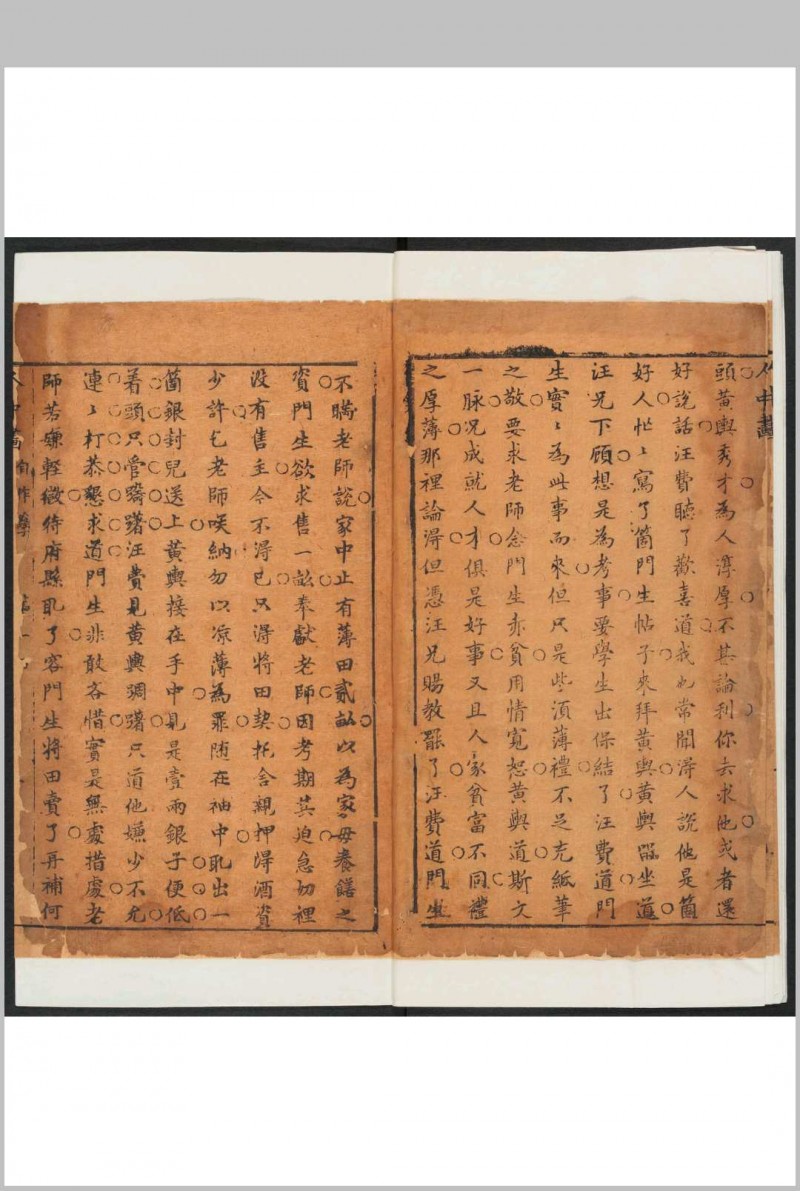 人中畫
頭黃輿秀才為人淳厚不甚論利你去求他或者還
好說話汪費聽了歡喜道我也常聞得人說他是箇
好人忙〻寫了箇門生帖子來拜黃輿黃輿留坐道
汪兄下顧想是為考事要學生出保結了汪費道門
生實〻為此事而來但只是些須薄禮不足充紙筆
之敬要求老師念門生赤貧用情寬恕黃輿道斯文
一脉况成就人才俱是好事又且人家貧富不同禮
之厚薄那裡論得但憑汪兄賜教罷了汪費道門生
不瞞老師說家中止有薄田貳畝以為家毋養饍之
資門生欲求售一畝奉獻老師因考期甚迫急切裡
沒有售主今不得已只得將田契托舍親押得酒資
少許乞老師咲納勿以凉薄為罪随在袖中取出一
箇銀封兒送上黃輿接在手中見是壹兩銀子便低
着頭只管躊躇汪費見黃輿躊躇只道他嫌少不允
連〻打恭懇求道門生非敢吝惜實是無處措處老
師若嫌輕微待府縣取了容門生將田賣了再補何
人中畫